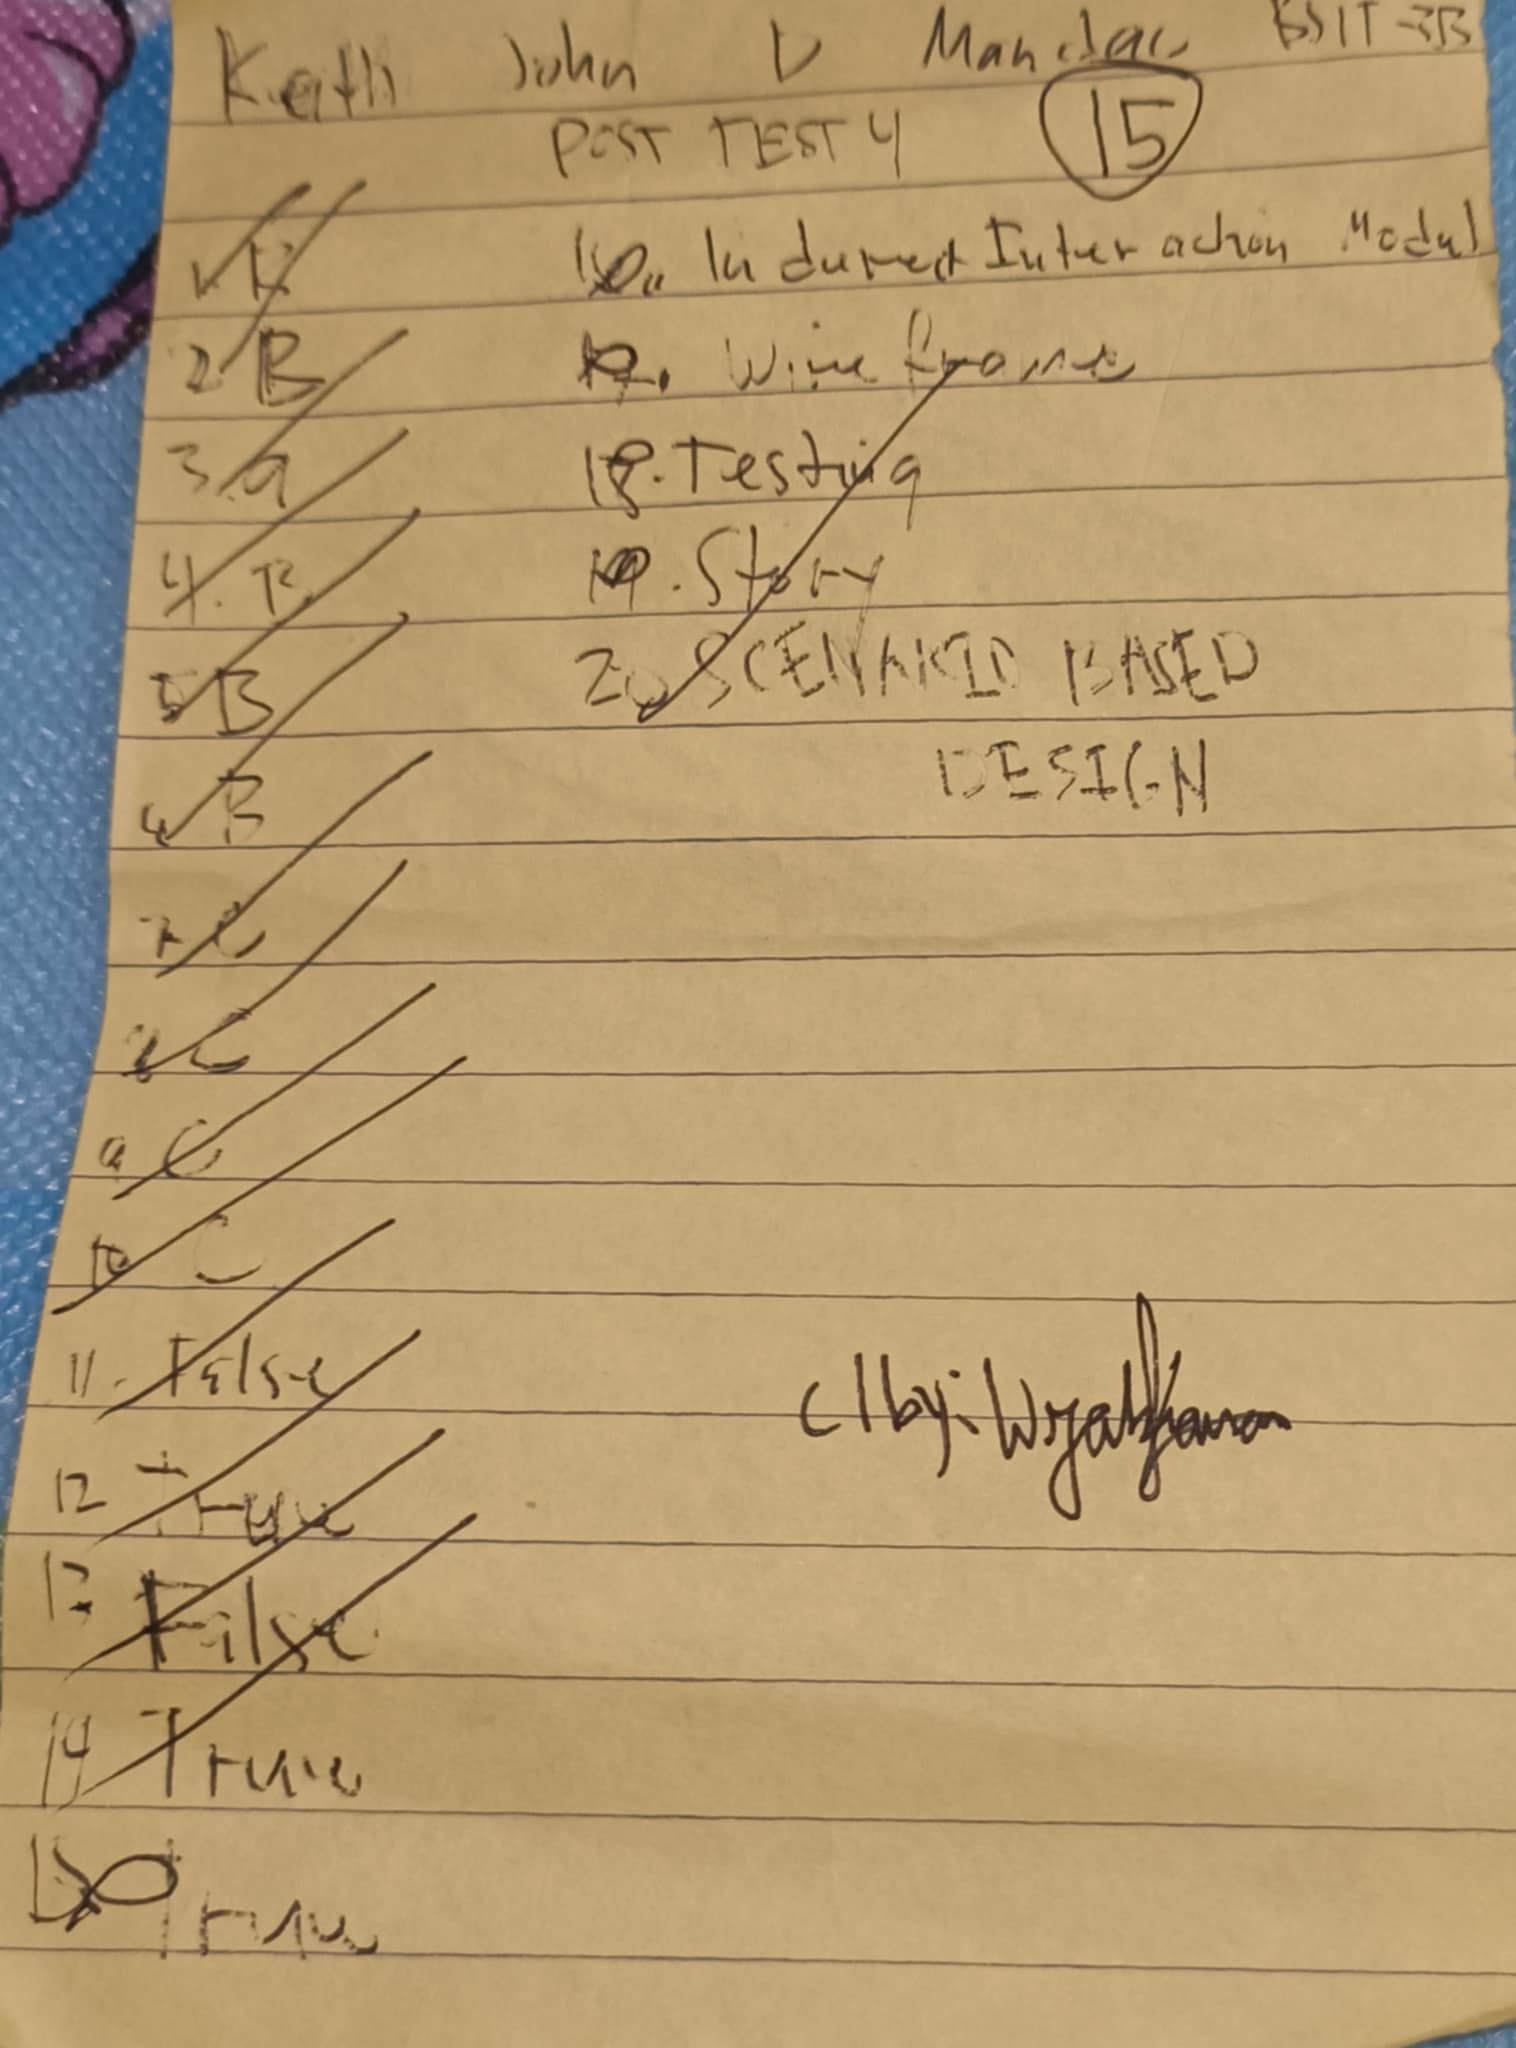 Keith John D Mandac BSIT-3B
POST TEST 4 15
1. B
2 B
3. a
4. B
5 B
6 B
7 C
8 C
9 C
10 C
11. False
12 True
13 False
14 True
15 True
16. Indirect Interaction Model
17. Wire frame
18. Testing
19. Story
20 SCENARIO BASED
DESIGN
C by: